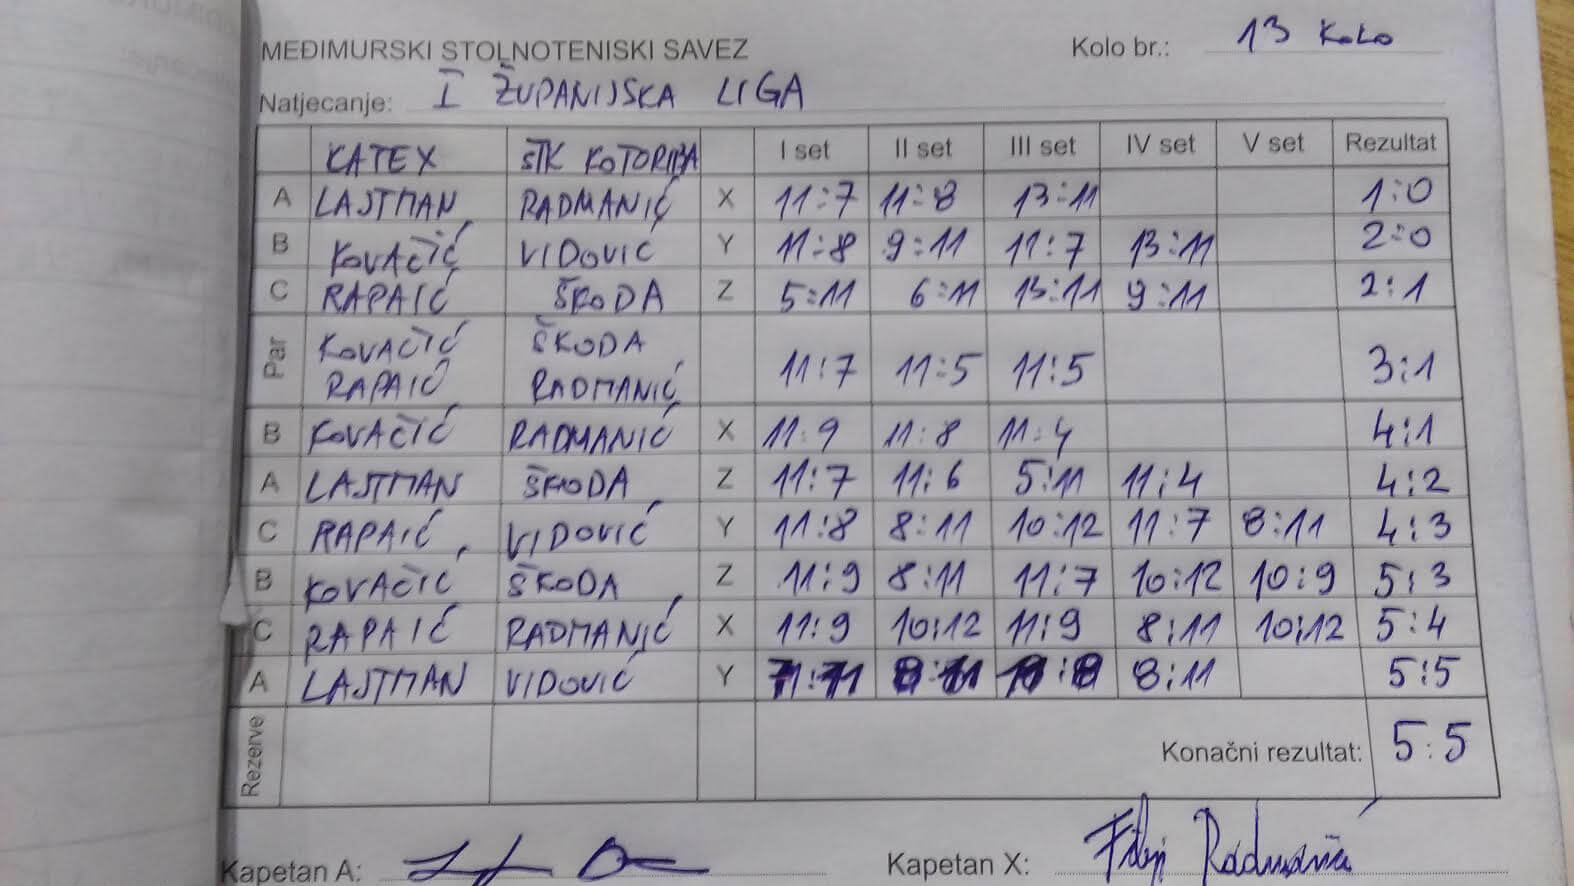 MEĐIMURSKI STOLNOTENISKI SAVEZ Kolo br.: 13 KOLO
Natjecanje: I ŽUPANIJSKA LIGA
KATEX STK KOTORIBA I set II set III set IV set V set Rezultat
A LAJTMAN RADMANIĆ X 11:7 11:8 13:11 1:0
B KOVAČIĆ VIDOVIĆ Y 11:8 9:11 11:7 13:11 2:0
C RAPAIĆ ŠKODA Z 5:11 6:11 13:11 9:11 2:1
Par KOVAČIĆ ŠKODA
RAPAIĆ RADMANIĆ 11:7 11:5 11:5 3:1
B KOVAČIĆ RADMANIĆ X 11:9 11:8 11:4 4:1
A LAJTMAN ŠKODA Z 11:7 11:6 5:11 11:4 4:2
C RAPAIĆ VIDOVIĆ Y 11:8 8:11 10:12 11:7 8:11 4:3
B KOVAČIĆ ŠKODA Z 11:9 8:11 11:7 10:12 10:9 5:3
C RAPAIĆ RADMANIĆ X 11:9 10:12 11:9 8:11 10:12 5:4
A LAJTMAN VIDOVIĆ Y 8:11 8:11 5:5
Rezerve Konačni rezultat: 5:5
Kapetan A: Kapetan X: Filip Radmanić